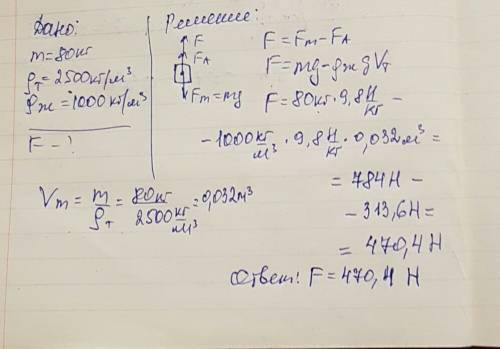 Дано:
m = 80 кг
ρт = 2500 кг/м³
ρж = 1000 кг/м³
F - ?
Решение:
F
FA
Fm = mg
F = Fm - FA
F = mg - ρж g Vт
F = 80 кг · 9,8 Н/кг -
- 1000 кг/м³ · 9,8 Н/кг · 0,032 м³ =
= 784 Н -
- 313,6 Н =
= 470,4 Н
Vm = m/ρт = 80 кг/2500 кг/м³ = 0,032 м³
Ответ: F = 470,4 Н